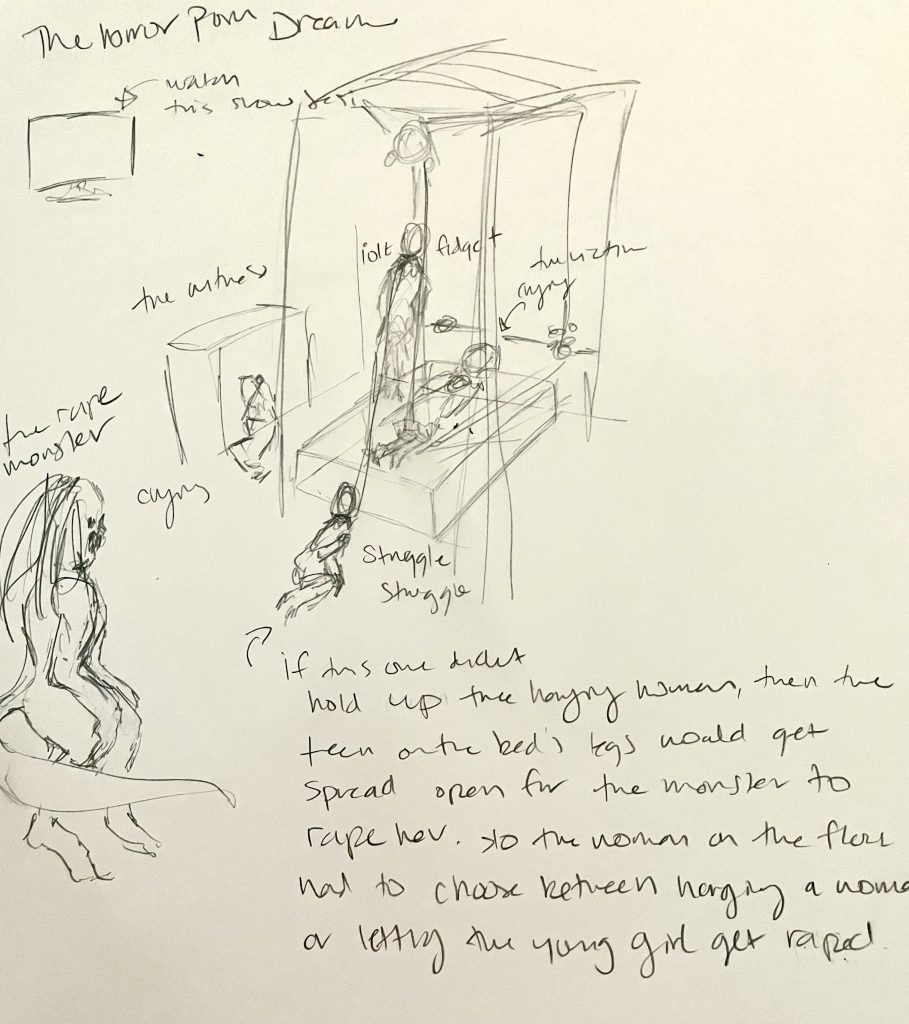 The horror Porn Dream
watch
this show
jolt
fidget
the victim
crying
the witness
the rape
monster
crying
Struggle
Struggle
if this one didnt
hold up the hanging woman, then the
teen on the bed's legs would get
spread open for the monster to
rape her. so the woman on the floor
had to choose between hanging a woma
or letting the young girl get raped.